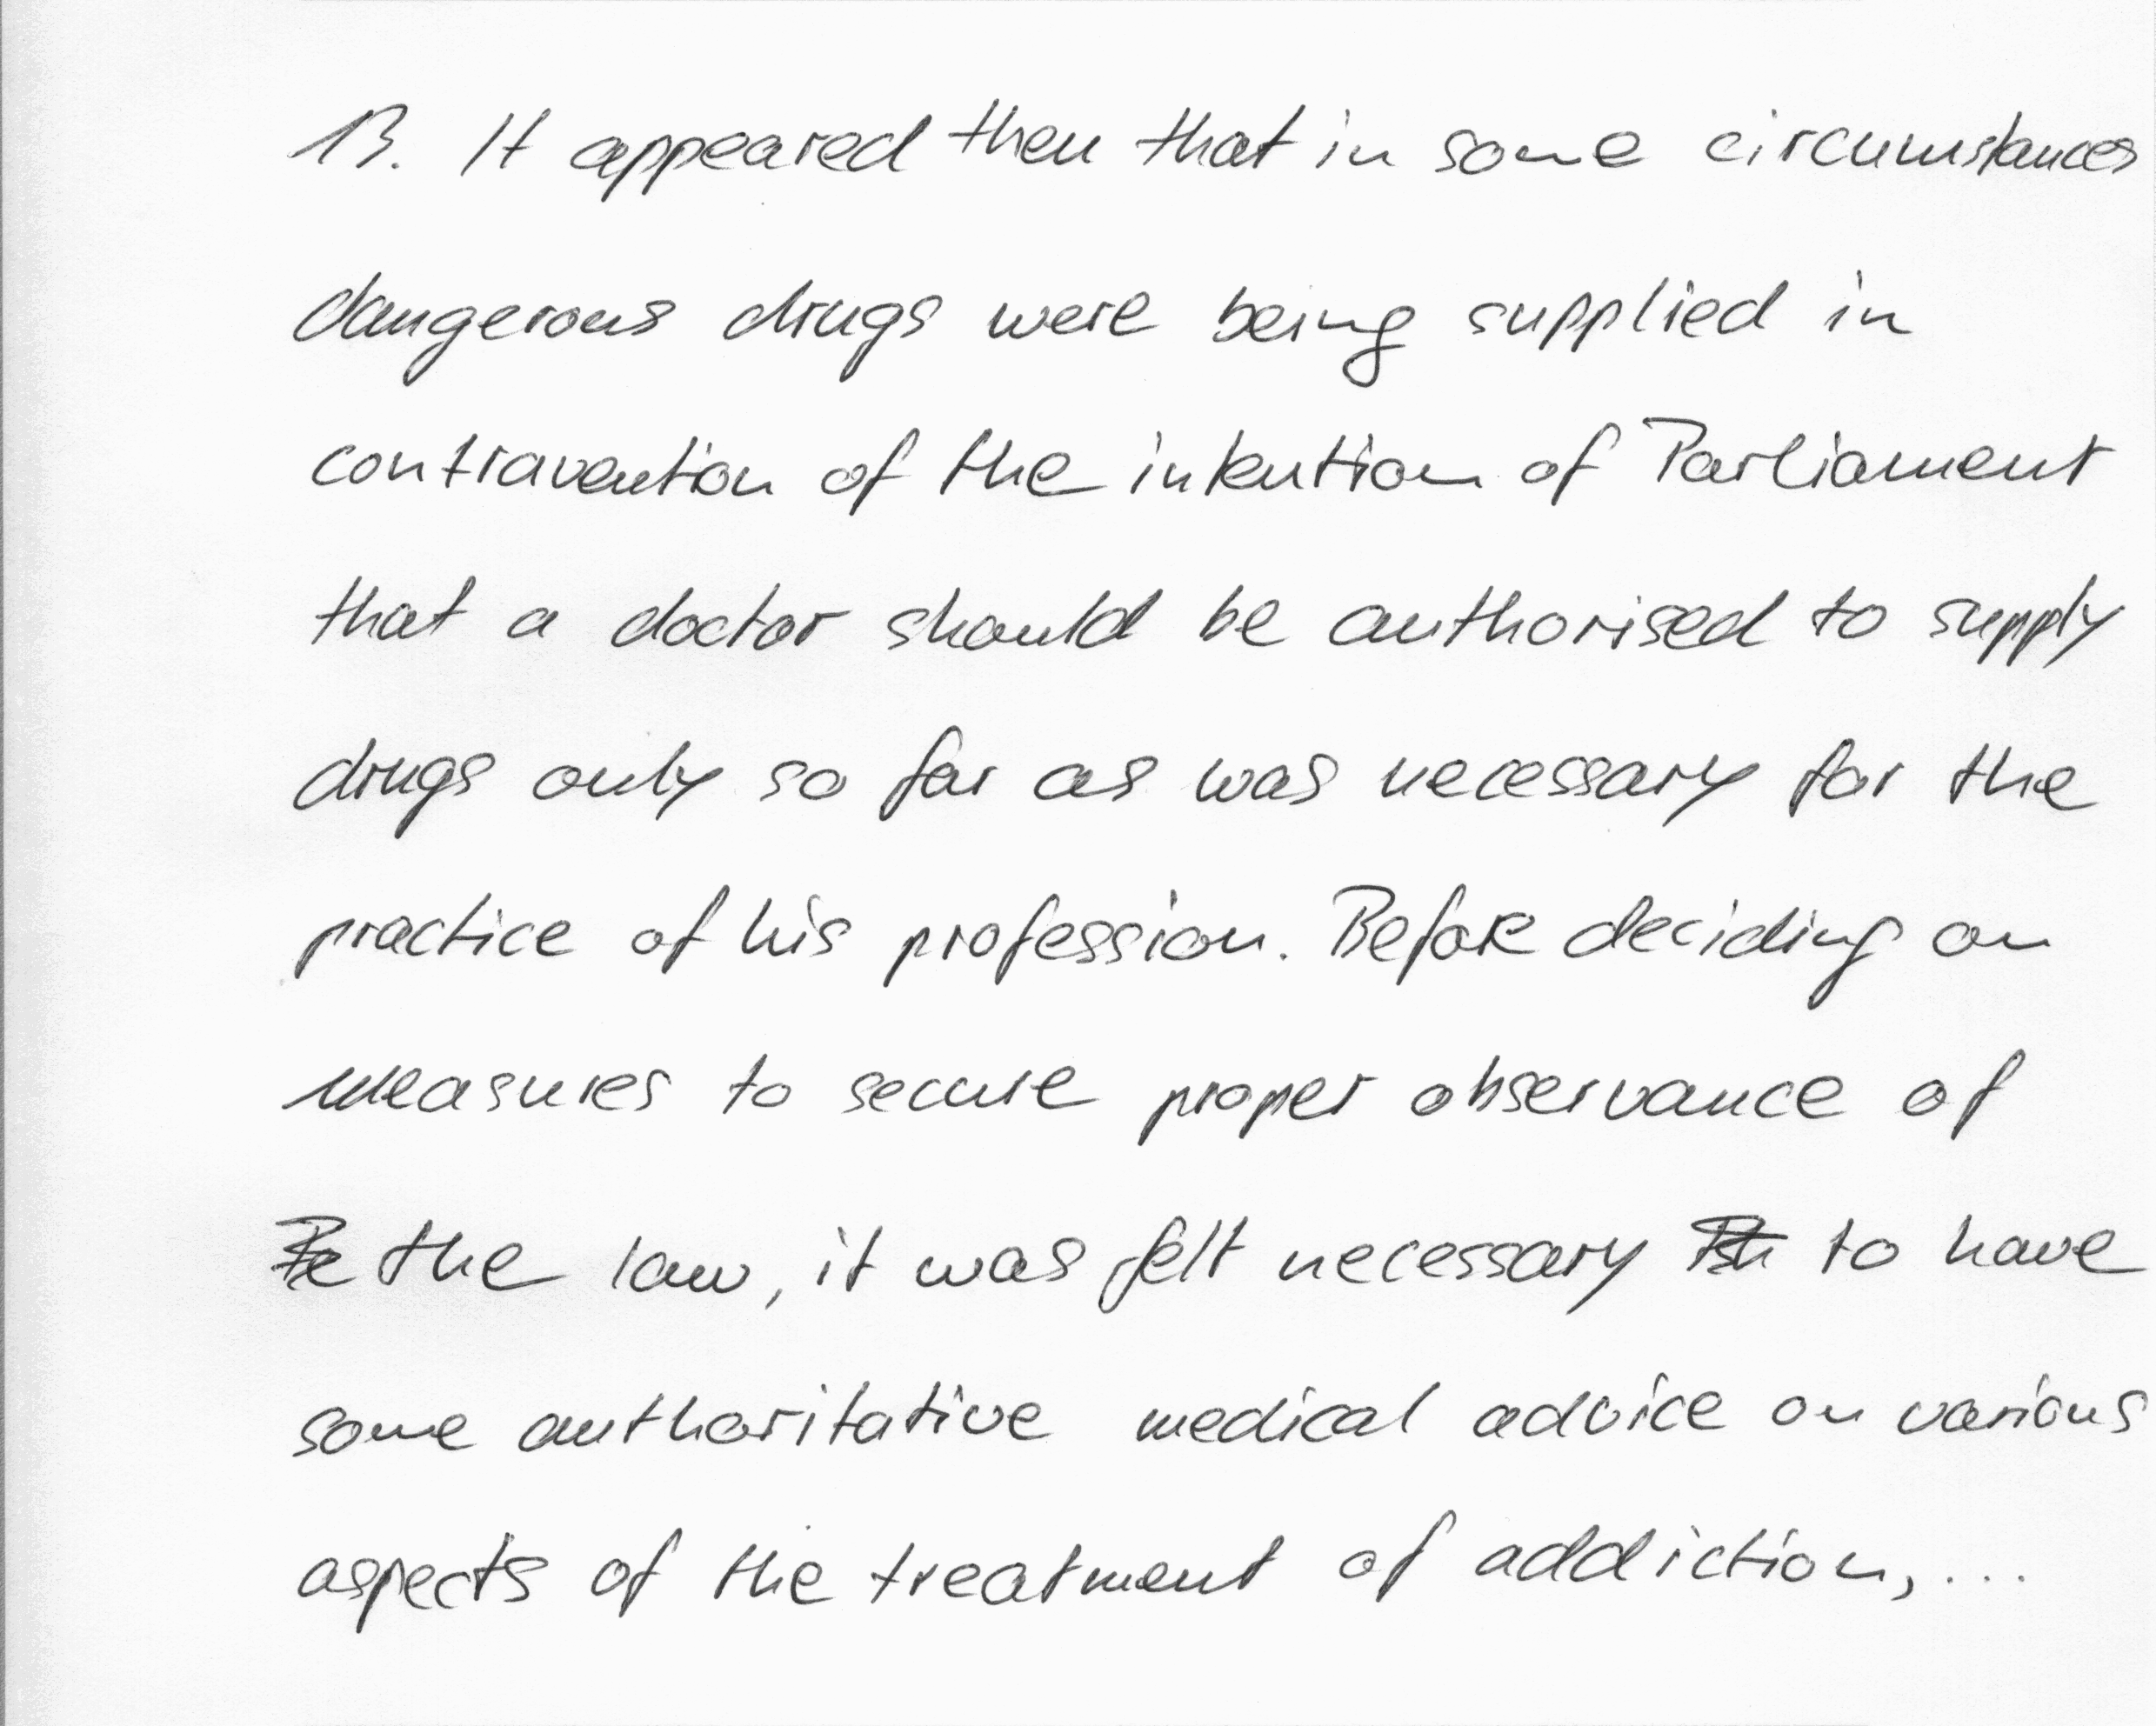 13. It appeared then that in some circumstances
dangerous drugs were being supplied in
contravention of the intention of Parliament
that a doctor should be authorised to supply
drugs only so far as was necessary for the
practice of his profession. Before deciding on
measures to secure proper observance of
the law, it was felt necessary to have
some authoritative medical advice on various
aspects of the treatment of addiction,...